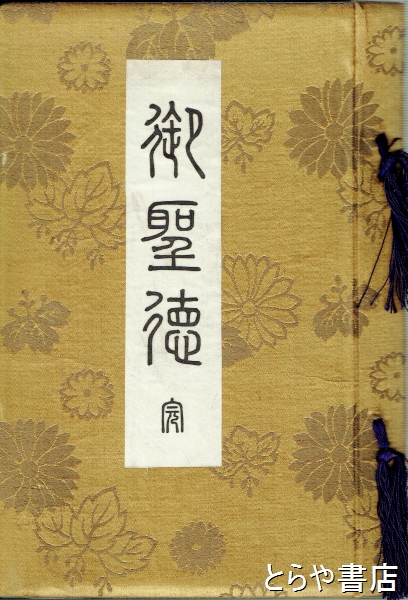 御聖徳
完
とらや書店